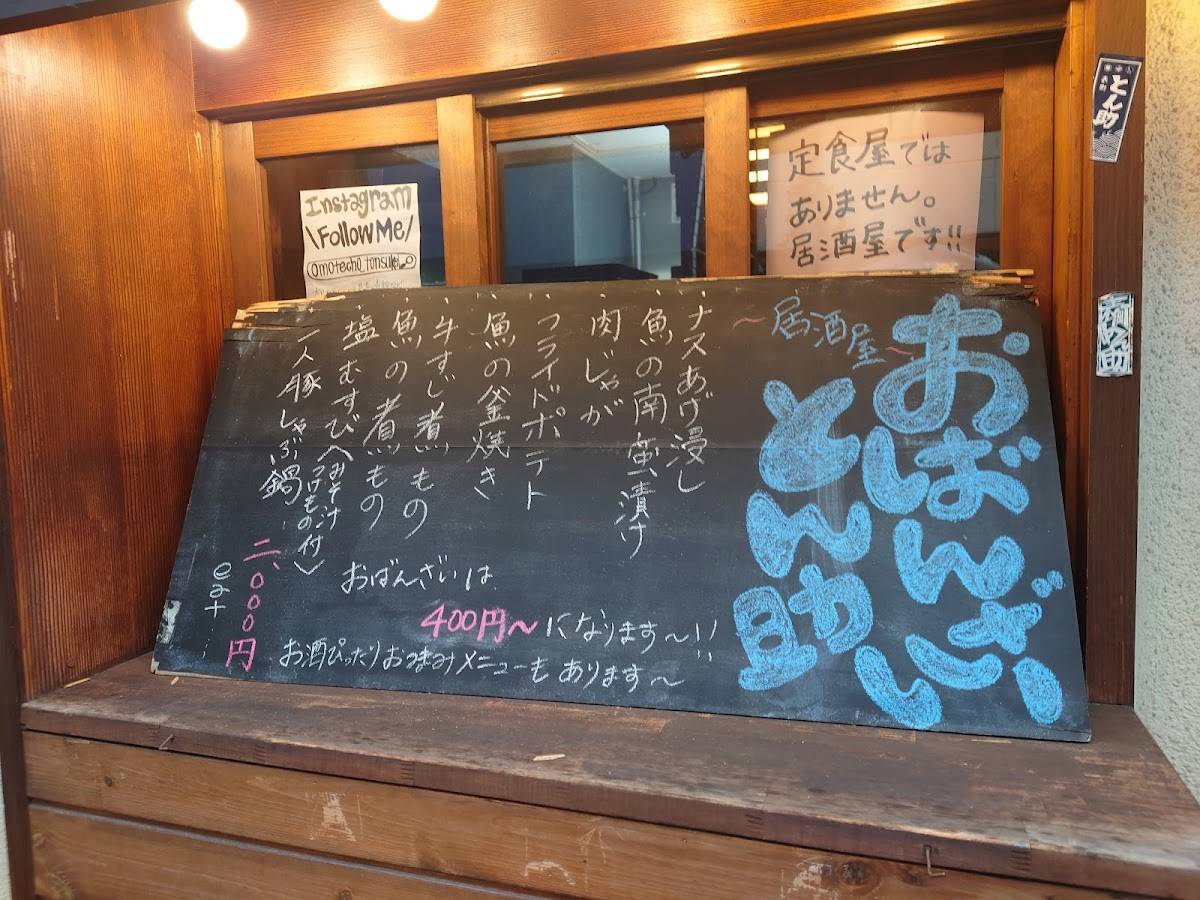 Instagram
\Follow Me/
定食屋では
ありません。
居酒屋です!!
とん助
おばんざい
～居酒屋～
とん助
・ナスあげ浸し
・魚の南蛮漬け
・肉じゃが
・フライドポテト
・魚の釜焼き
・牛すじ煮もの
・魚の煮もの
・塩むすび〈みそ汁
つけもの付〉
・一人豚しゃぶ鍋
二、000円
eat
おばんざいは
400円～になります～!!
お酒ぴったりおつまみメニューもあります～